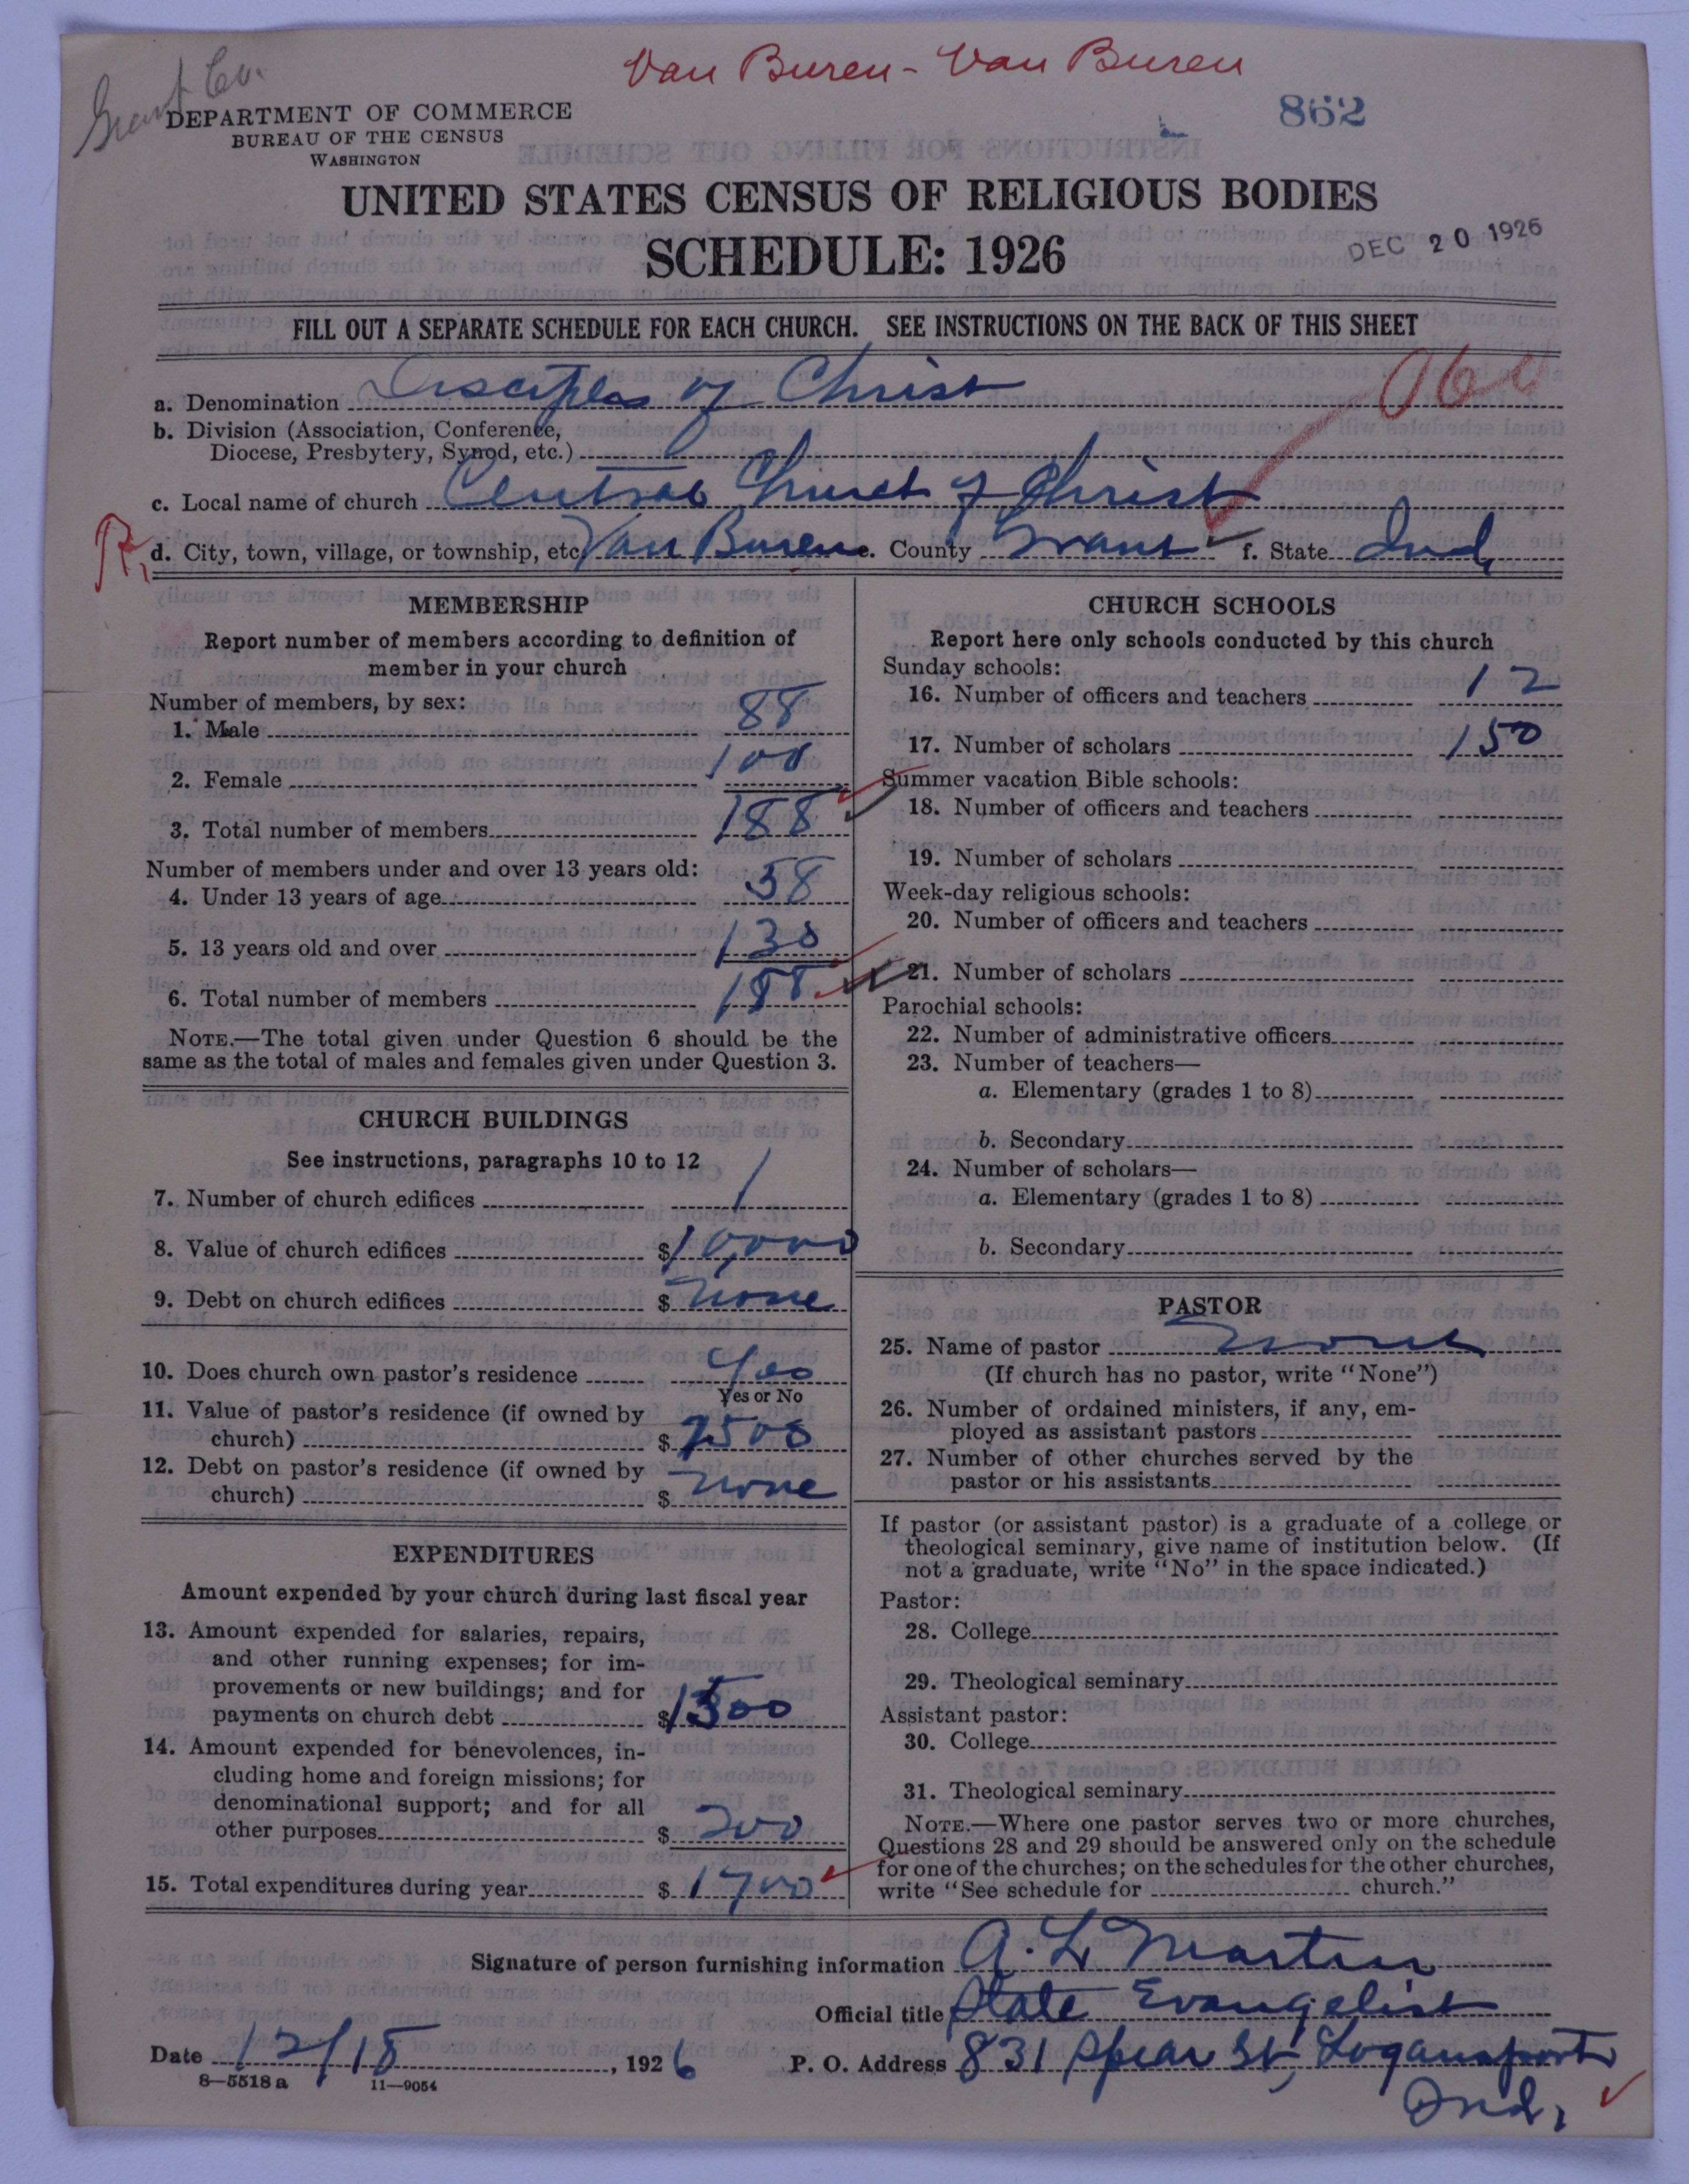 Van Buren - Van Buren
Grant Co.
862
DEPARTMENT OF COMMERCE
BUREAU OF THE CENSUS
WASHINGTON
UNITED STATES CENSUS OF RELIGIOUS BODIES
SCHEDULE: 1926
DEC 20 1926
FILL OUT A SEPARATE SCHEDULE FOR EACH CHURCH. SEE INSTRUCTIONS ON THE BACK OF THIS SHEET
a. Denomination Disciples of Christ
b. Division (Association, Conference,
Diocese, Presbytery, Synod, etc.)
c. Local name of church Central Church of Christ
d. City, town, village, or township, etc. Van Buren e. County Grant f. State Ind.
MEMBERSHIP
Report number of members according to definition of
member in your church
Number of members, by sex:
1. Male 88
2. Female 100
3. Total number of members 188
Number of members under and over 13 years old:
4. Under 13 years of age 58
5. 13 years old and over 130
6. Total number of members 188
NOTE.—The total given under Question 6 should be the
same as the total of males and females given under Question 3.
CHURCH BUILDINGS
See instructions, paragraphs 10 to 12
7. Number of church edifices 1
8. Value of church edifices $10,000
9. Debt on church edifices $ none
10. Does church own pastor's residence Yes
Yes or No
11. Value of pastor's residence (if owned by
church) $ 2500
12. Debt on pastor's residence (if owned by
church) $ none
EXPENDITURES
Amount expended by your church during last fiscal year
13. Amount expended for salaries, repairs,
and other running expenses; for im-
provements or new buildings; and for
payments on church debt $1500
14. Amount expended for benevolences, in-
cluding home and foreign missions; for
denominational support; and for all
other purposes $ 200
15. Total expenditures during year $ 1700
CHURCH SCHOOLS
Report here only schools conducted by this church
Sunday schools:
16. Number of officers and teachers 12
17. Number of scholars 150
Summer vacation Bible schools:
18. Number of officers and teachers
19. Number of scholars
Week-day religious schools:
20. Number of officers and teachers
21. Number of scholars
Parochial schools:
22. Number of administrative officers
23. Number of teachers—
a. Elementary (grades 1 to 8)
b. Secondary
24. Number of scholars—
a. Elementary (grades 1 to 8)
b. Secondary
PASTOR
25. Name of pastor none
(If church has no pastor, write "None")
26. Number of ordained ministers, if any, em-
ployed as assistant pastors
27. Number of other churches served by the
pastor or his assistants
If pastor (or assistant pastor) is a graduate of a college or
theological seminary, give name of institution below. (If
not a graduate, write "No" in the space indicated.)
Pastor:
28. College
29. Theological seminary
Assistant pastor:
30. College
31. Theological seminary
NOTE.—Where one pastor serves two or more churches,
Questions 28 and 29 should be answered only on the schedule
for one of the churches; on the schedules for the other churches,
write "See schedule for church."
Signature of person furnishing information A. L. Martin
Official title State Evangelist
Date 12/18, 1926 P. O. Address 831 Spear St, Logansport
Ind.
8—5518 a 11—9054